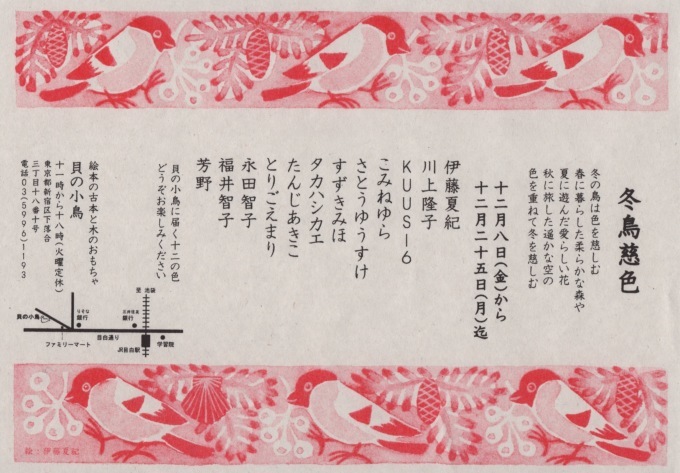 冬鳥慈色
冬の鳥は色を慈しむ
春に暮らした柔らかな森や
夏に遊んだ愛らしい花
秋に旅した遥かな空の
色を重ねて冬を慈しむ
十二月八日(金)から
十二月二十五日(月)迄
伊藤夏紀
川上隆子
KUUSI-6
こみねゆら
さとうゆうすけ
すずきみほ
タカハシカエ
たんじあきこ
とりごえまり
永田智子
福井智子
芳野
貝の小鳥に届く十二の色
どうぞお楽しみください
絵本の古本と木のおもちゃ
貝の小鳥
十一時から十八時(火曜定休)
東京都新宿区下落合
三丁目十八番十号
電話03(5996)1193
至 池袋
りそな
銀行
三井住友
銀行
貝の小鳥
目白通り
ファミリーマート
JR目白駅
学習院
絵:伊藤夏紀